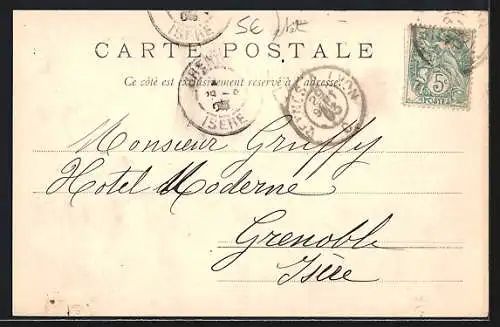 5E
CARTE POSTALE
Ce côté est exclusivement réservé à l'adresse.
ISERE
ISERE
5
POSTES
Monsieur Gruffy
Hotel Moderne
Grenoble
Isère